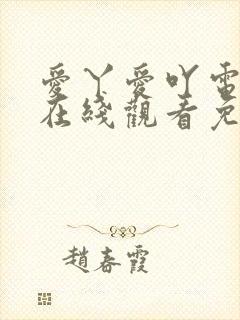 愛丫愛吖電
在綫觀看免
趙春霞